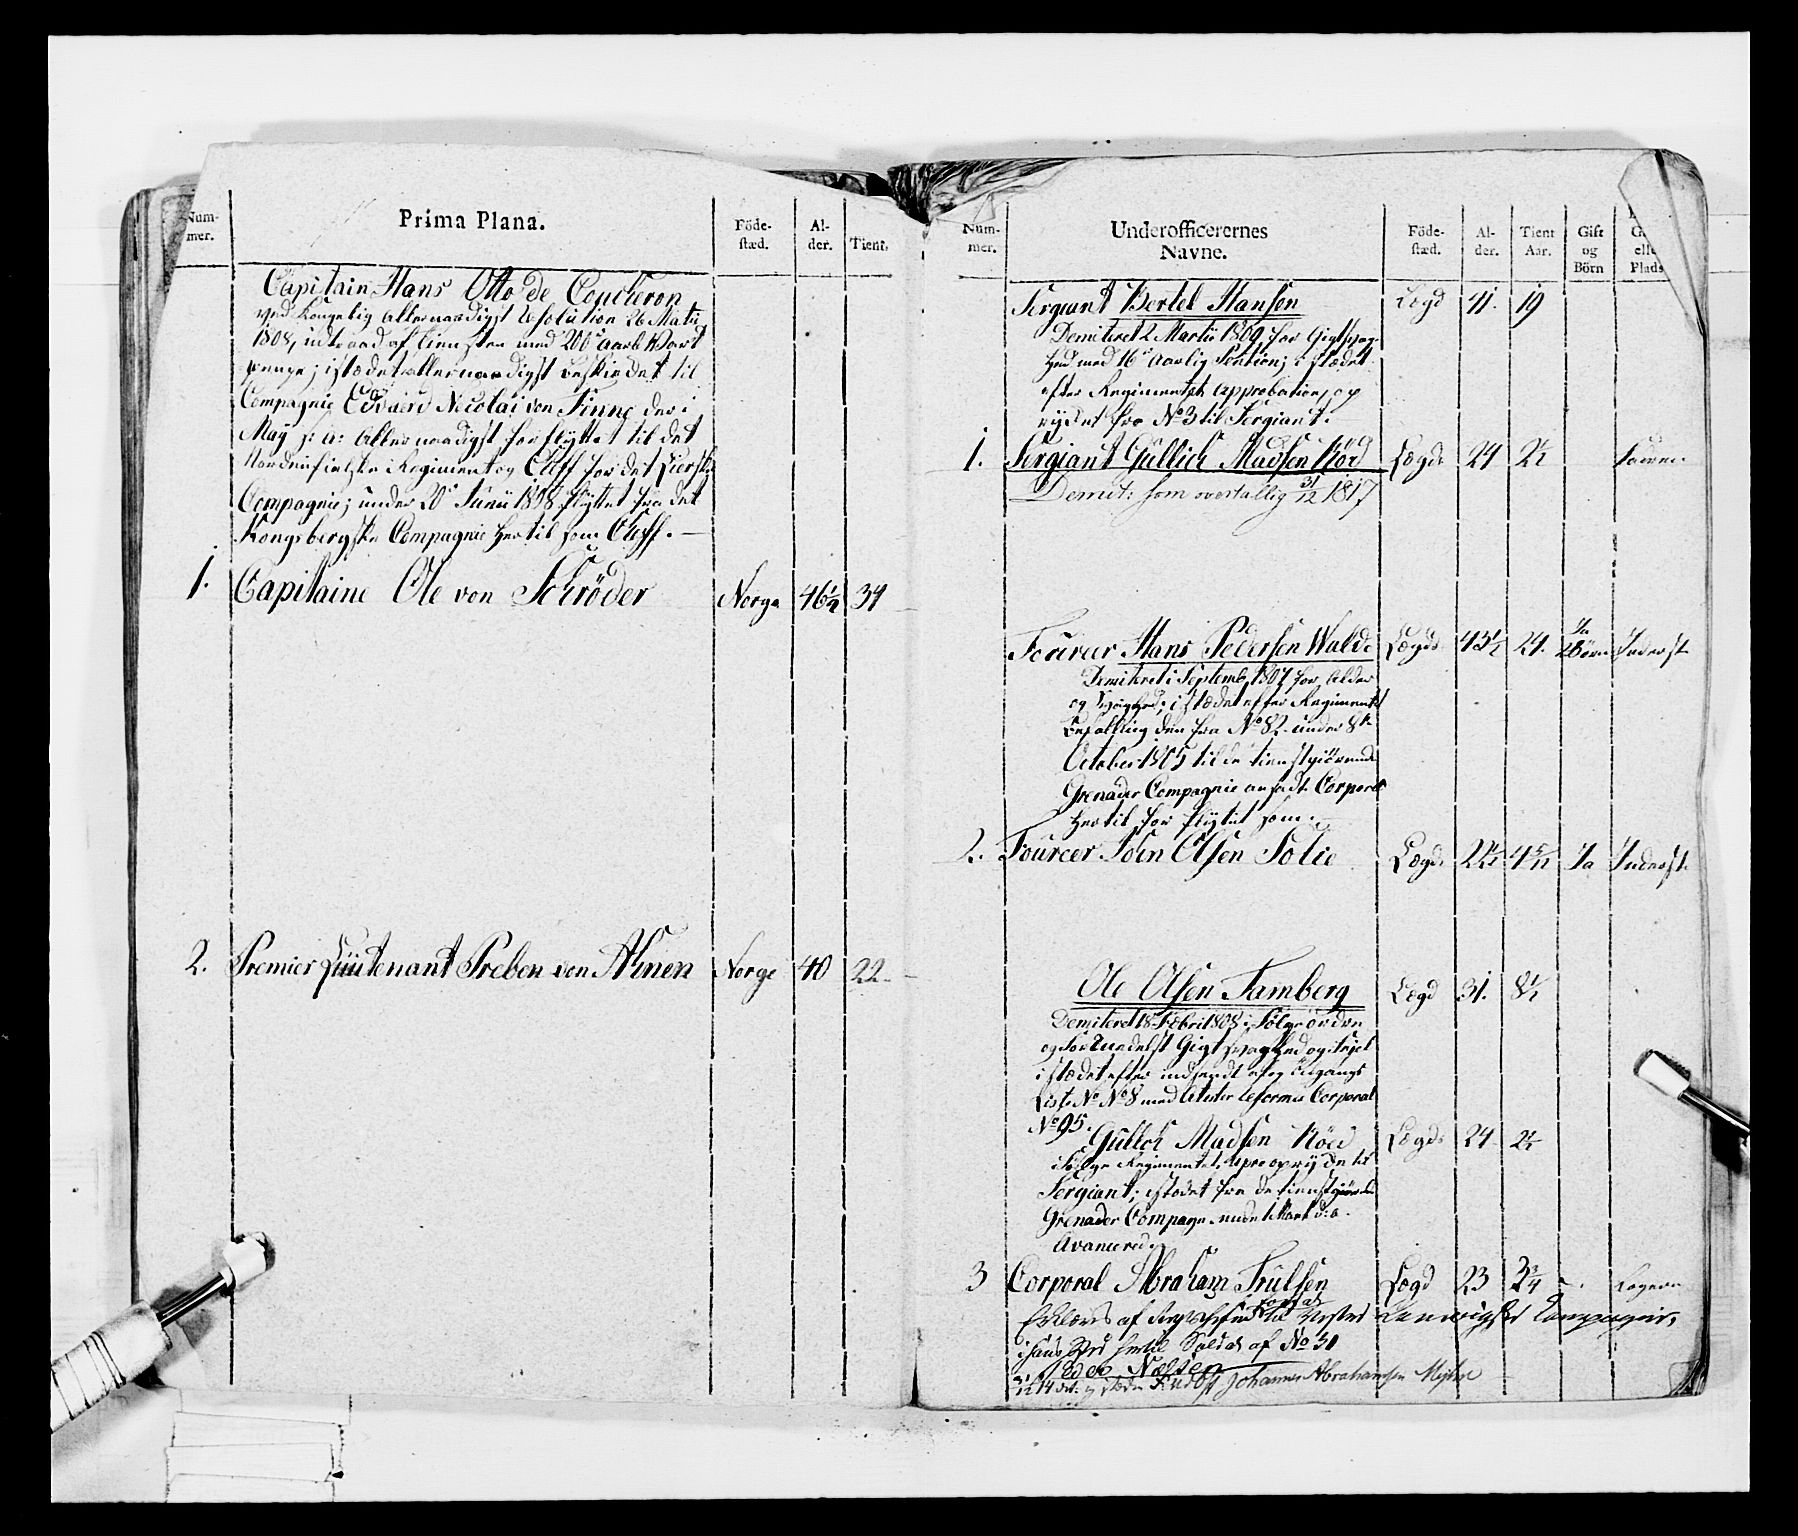 Num-
mer.
Prima Plana.
Föde-
stæd.
Al-
der.
Tient.
Capitain Hans Otto de Coucheron
ved Kongelig Allernaadigst Resolution 26 Martii
1808, indtraad af Tiensten med 200 aarl Wart
penge; istædet allernaadigst beskicket til
Compagnie Edvaerd Nicolai von Finne der i
May s: a: Allernaadigst forflyttet til det
Nordenfielske Regiment og Cheff for det Lierske
Compagnie; under 20 Junii 1808 flyttet fra det
Kongsbergske Compagnie hertil som Cheff. —
1. Capitaine Ole von Schröder Norge 46½ 34
2. Premier Liiutenant Preben von Ahnen Norge 40 22.
Num-
mer.
Underofficerernes
Navne.
Föde-
stæd.
Al-
der.
Tient
Aar.
Gift
og
Börn
elle
Plads
Sergiant Bertel Hansen Lægd 41. 19
Demiteret 2 Martii 1809 for Gigtsvag-
hed med 16 Aarlig Pention; i stædet
efter Regimentets Approbation, op
rydet fra No 3 til Sergiant.
1. Sergiant Gullich Madsen Röd Lægds 24 2½
Demit: som overtallig 31/12 1817
Fourer Hans Pedersen Walde Lægds 43½ 24. Ja 2 Börn Inderst
Demiteret i Septemb 1807 for Alder
og Svaghed; i stædet efter Regimentets
Befalling den fra No 82 under 8de
October 1805 til de tienstgiörende
Grenader Compagnie ansadt Corporal
hertil forflytet som.
2. Foureer Joen Olsen Solie Lægds 22½ 4 5/12 Ja Inderst.
Ole Olsen Tamberg Lægd 31. 8½
Demiteret 18 Febri 1808 i Fölge ordre
og Gigt svaghed og
i stædet efter indsendt af og tilgangs
Liste No No 8 med Corporal
No 95.
Gullch Madsen Röed Lægds 24 2½
i Fölge Regimentets oprydet til
Sergiant; istædet fra de tienstgiörende
Grenader Compagn
Avancered.
3 Corporal Abraham Trulsen Lægd 23 3¾ -.
af til Compagnie,
i hans Sted hertil Soldat af No 31
Peder Nielsen
31/12 14 Johannes Abrahamsen